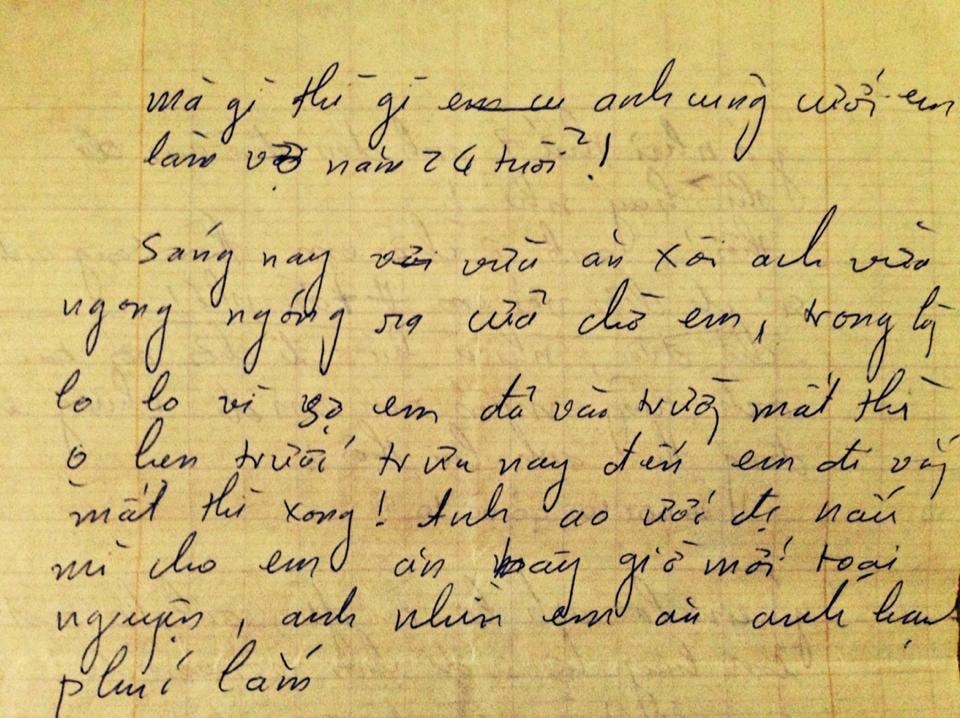 mà gì thì gì em cu anh cũng cưới em
làm vợ năm 24 tuổi?!
Sáng nay vừa ăn xôi anh vừa
ngong ngóng ra cửa chờ em, trong lòng
lo lo vì sợ em đã vào trường mất thì
o hẹn trước trưa nay đến em đi vắng
mất thì xong! Anh ao ước được nấu
mì cho em ăn bây giờ mới toại
nguyện, anh nhìn em ăn anh hạnh
phúc lắm